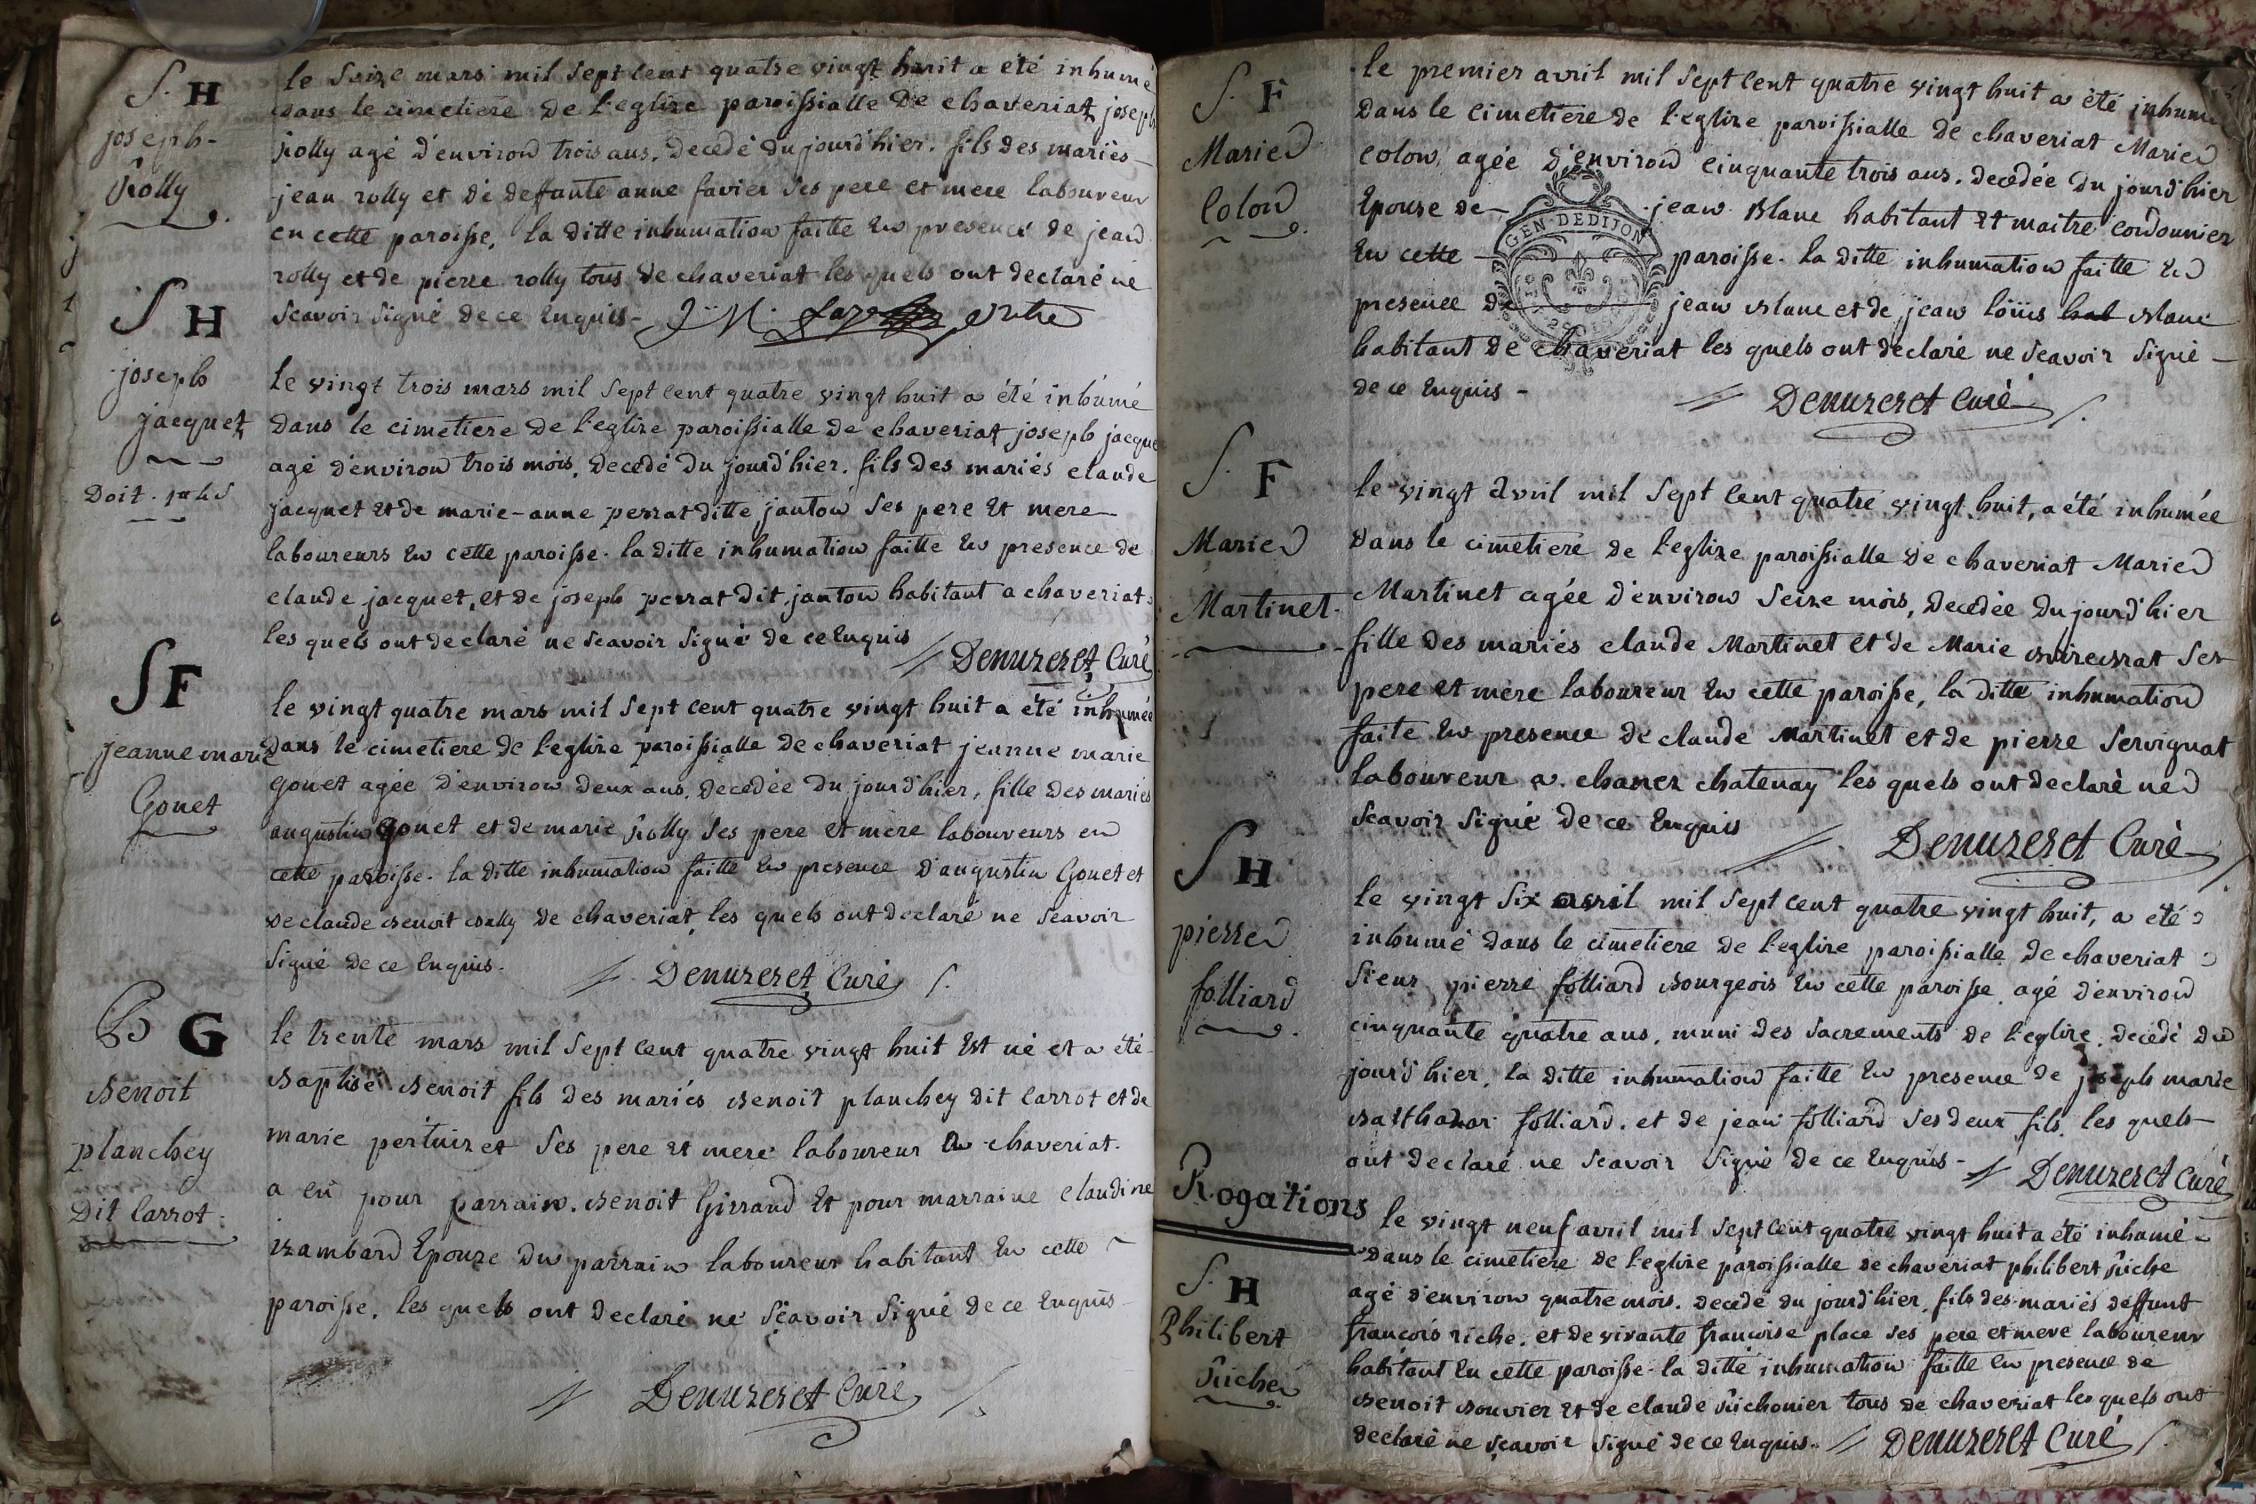 S. H
joseph-
Rolly
le Seize mars mil Sept Cent quatre vingt huit a été inhumé
dans le cimetiere de l'eglize paroissialle de chaveriat joseph
Rolly agé d'environ trois ans. decedé du jourd'hier. fils des mariés
jean rolly et de deffunte anne favier Ses pere et mere laboureur
en cette paroisse, la ditte inhumation faitte en presence de jean
rolly et de pierre rolly tous de chaveriat les quels ont declaré ne
Scavoir Signé de ce Enquis-
S H
joseph
jacquet
Doit
le vingt trois mars mil Sept cent quatre vingt huit a été inhumé
dans le cimetiere de l'eglize paroissialle de chaveriat joseph jacque
agé d'environ trois mois, decedé du jourd'hier. fils des mariés claude
jacquet et de marie-anne perrat ditte janton Ses pere et mere
laboureurs en cette paroisse. la ditte inhumation faitte en presence de
claude jacquet, et de joseph perrat dit janton habitant a chaveriat
les quels ont declaré ne Scavoir Signé de ce Enquis
Denuzeret, Curé
S F
jeanne marie
Gonet
le vingt quatre mars mil Sept cent quatre vingt huit a été inhumée
dans le cimetiere de l'eglize paroissialle de chaveriat jeanne marie
gonet agée d'environ deux ans. decedée du jourd'hier, fille des mariés
augustin gonet et de marie Rolly Ses pere et mere laboureurs en
cette paroisse. la ditte inhumation faitte en presence d'augustin Gonet et
de claude Benoit Bally de chaveriat, les quels ont declaré ne Scavoir
Signé de ce Enquis.
Denuzeret Curé
B G
Benoit
planchey
Dit Carrot
le trente mars mil Sept cent quatre vingt huit Est né et a été
Baptisé Benoit fils des mariés Benoit planchey dit Carrot et de
marie pertuizet Ses pere et mere laboureur a chaveriat.
a eu pour parrain. Benoit Girraud Et pour marraine Claudine
izambard Epouze du parrain laboureur habitant En cette
paroisse. les quels ont declaré ne Sçavoir Signé de ce Enquis
Denuzeret Curé
S. F
Marie
Colon
le premier avril mil Sept Cent quatre vingt huit a été inhumé
Dans le Cimetiere de l'eglize paroissialle de chaveriat Marie
Colon, agée d'environ cinquante trois ans. decedée du jourd'hier
Epouze de jean Blanc habitant Et maitre Cordonnier
En cette paroisse. la ditte inhumation faitte En
presence de jean Blanc et de jean loüis hab Blanc
habitant de chaveriat les quels ont declaré ne Scavoir Signé
de ce Enquis
GEN. DE DIJON
Denuzeret Curé
S. F
Marie
Martinet
le vingt avril mil Sept Cent quatre vingt huit, a été inhumée
dans le cimetiere de l'eglize paroissialle de chaveriat Marie
Martinet agée d'environ Seize mois, decedée du jourd'hier
fille des mariés claude Martinet et de Marie Ses
pere et mere laboureur En cette paroisse, la ditte inhumation
faite En presence de claude Martinet et de pierre Servignat
laboureur a chatenay les quels ont declaré ne
Scavoir Signé de ce Enquis
Denuzeret Curé
S H
pierre
folliard
le vingt Six avril mil Sept cent quatre vingt huit, a été
inhumé dans le cimetiere de l'eglize paroissialle de chaveriat
Sieur pierre folliard Bourgeois En cette paroisse, agé d'environ
cinquante quatre ans, muni des Sacrements de l'eglize, decedé du
jourd'hier, la ditte inhumation faitte En presence de joseph marie
Balthazar folliard. et de jean folliard Ses deux fils les quels
ont declaré ne Scavoir Signé de ce Enquis-
Denuzeret Curé
Rogations
S. H
Philibert
Riche
le vingt neuf avril mil Sept cent quatre vingt huit a été inhumé
dans le cimetiere de l'eglize paroissialle de chaveriat philibert Riche
agé d'environ quatre mois. decedé du jourd'hier, fils des mariés deffunt
francois riche. et de vivante francoise place Ses pere et mere laboureur
habitant En cette paroisse. la ditte inhumation faitte En presence de
Benoit Bouvier Et de claude Richonier tous de chaveriat les quels ont
declaré ne Sçavoir Signé de ce Enquis.
Denuzeret Curé